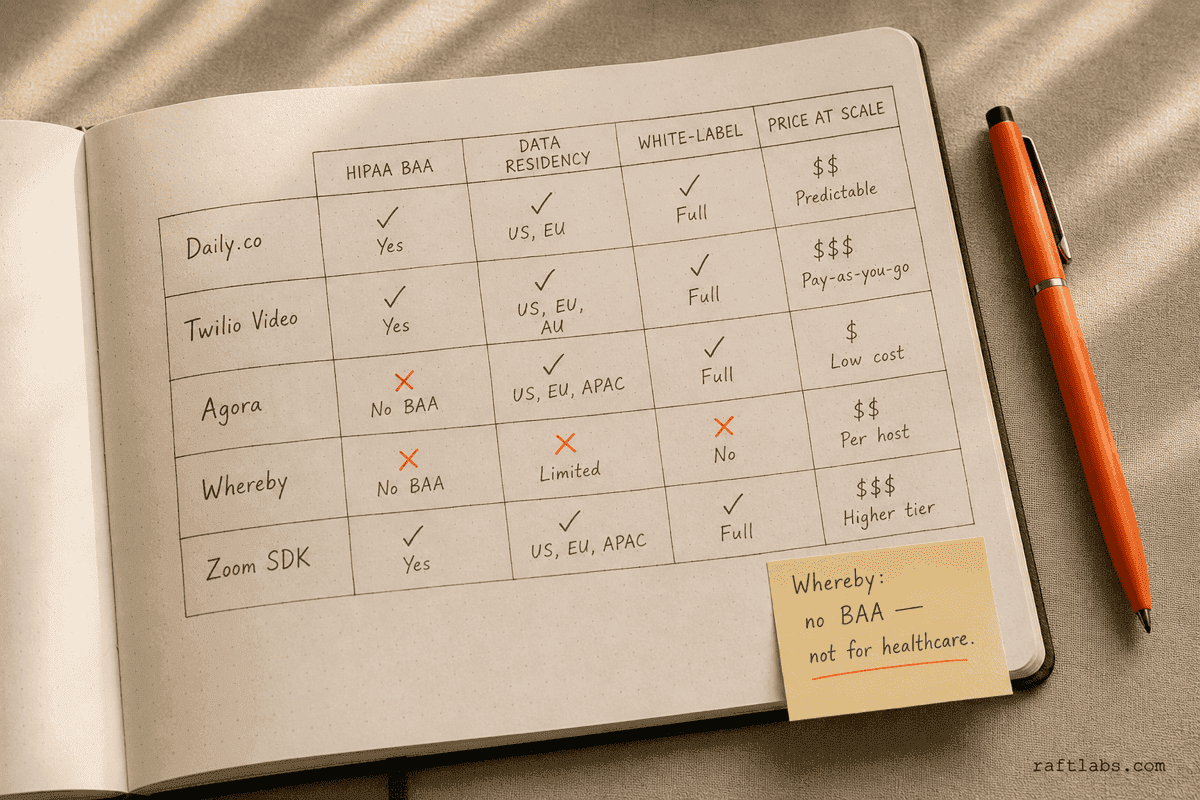 HIPAA BAA
DATA
RESIDENCY
WHITE-LABEL
PRICE AT SCALE
Daily.co
✓
Yes
✓
US, EU
✓
Full
$$
Predictable
Twilio Video
✓
Yes
✓
US, EU,
AU
✓
Full
$$$
Pay-as-you-go
Agora
✗
No BAA
✓
US, EU, APAC
✓
Full
$
Low cost
Whereby
✗
No BAA
✗
Limited
✗
No
$$
Per host
Zoom SDK
✓
Yes
✓
US, EU, APAC
✓
Full
$$$
Higher tier
Whereby:
no BAA —
not for healthcare.
raftlabs.com